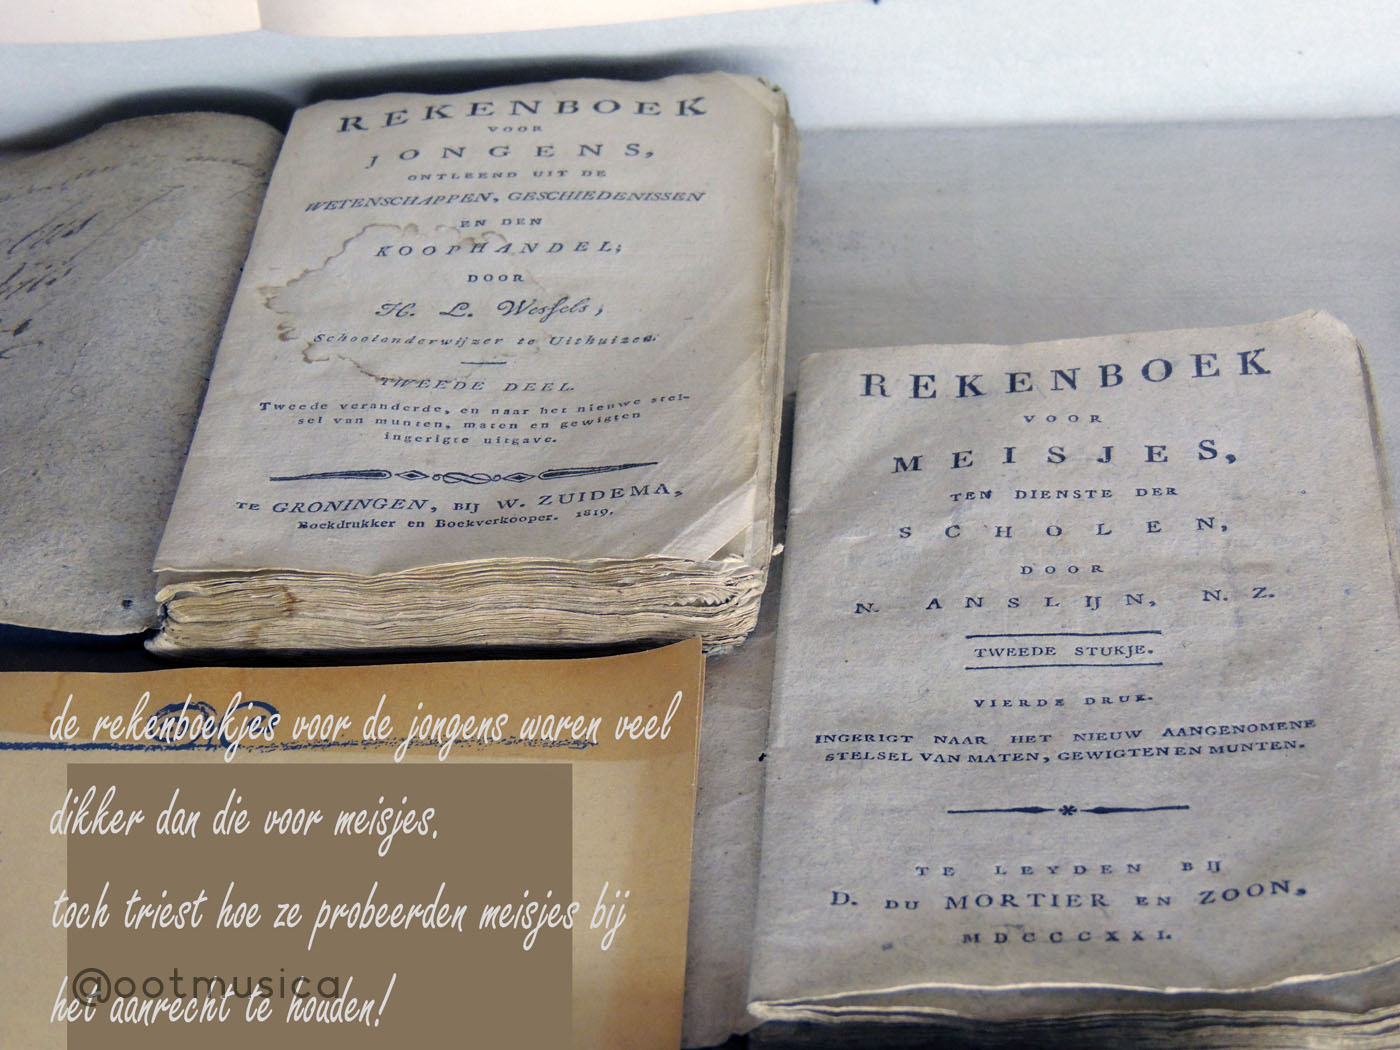 REKENBOEK
VOOR
JONGENS,
ONTLEEND UIT DE
WETENSCHAPPEN, GESCHIEDENISSEN
EN DEN
KOOPHANDEL;
DOOR
H. L. Wessels,
Schoolonderwijzer te Uithuizen.
TWEEDE DEEL.
Tweede veranderde, en naar het nieuwe stel-
sel van munten, maten en gewigten
ingerigte uitgave.
TE GRONINGEN, BIJ W. ZUIDEMA,
Boekdrukker en Boekverkooper. 1819.
REKENBOEK
VOOR
MEISJES,
TEN DIENSTE DER
SCHOLEN,
DOOR
N. ANSLIJN, N. Z.
TWEEDE STUKJE.
VIERDE DRUK.
INGERIGT NAAR HET NIEUW AANGENOMENE
STELSEL VAN MATEN, GEWIGTEN EN MUNTEN.
TE LEYDEN BIJ
D. DU MORTIER EN ZOON,
MDCCCXXI.
de rekenboekjes voor de jongens waren veel
dikker dan die voor meisjes.
toch triest hoe ze probeerden meisjes bij
het aanrecht te houden!
@ootmusica